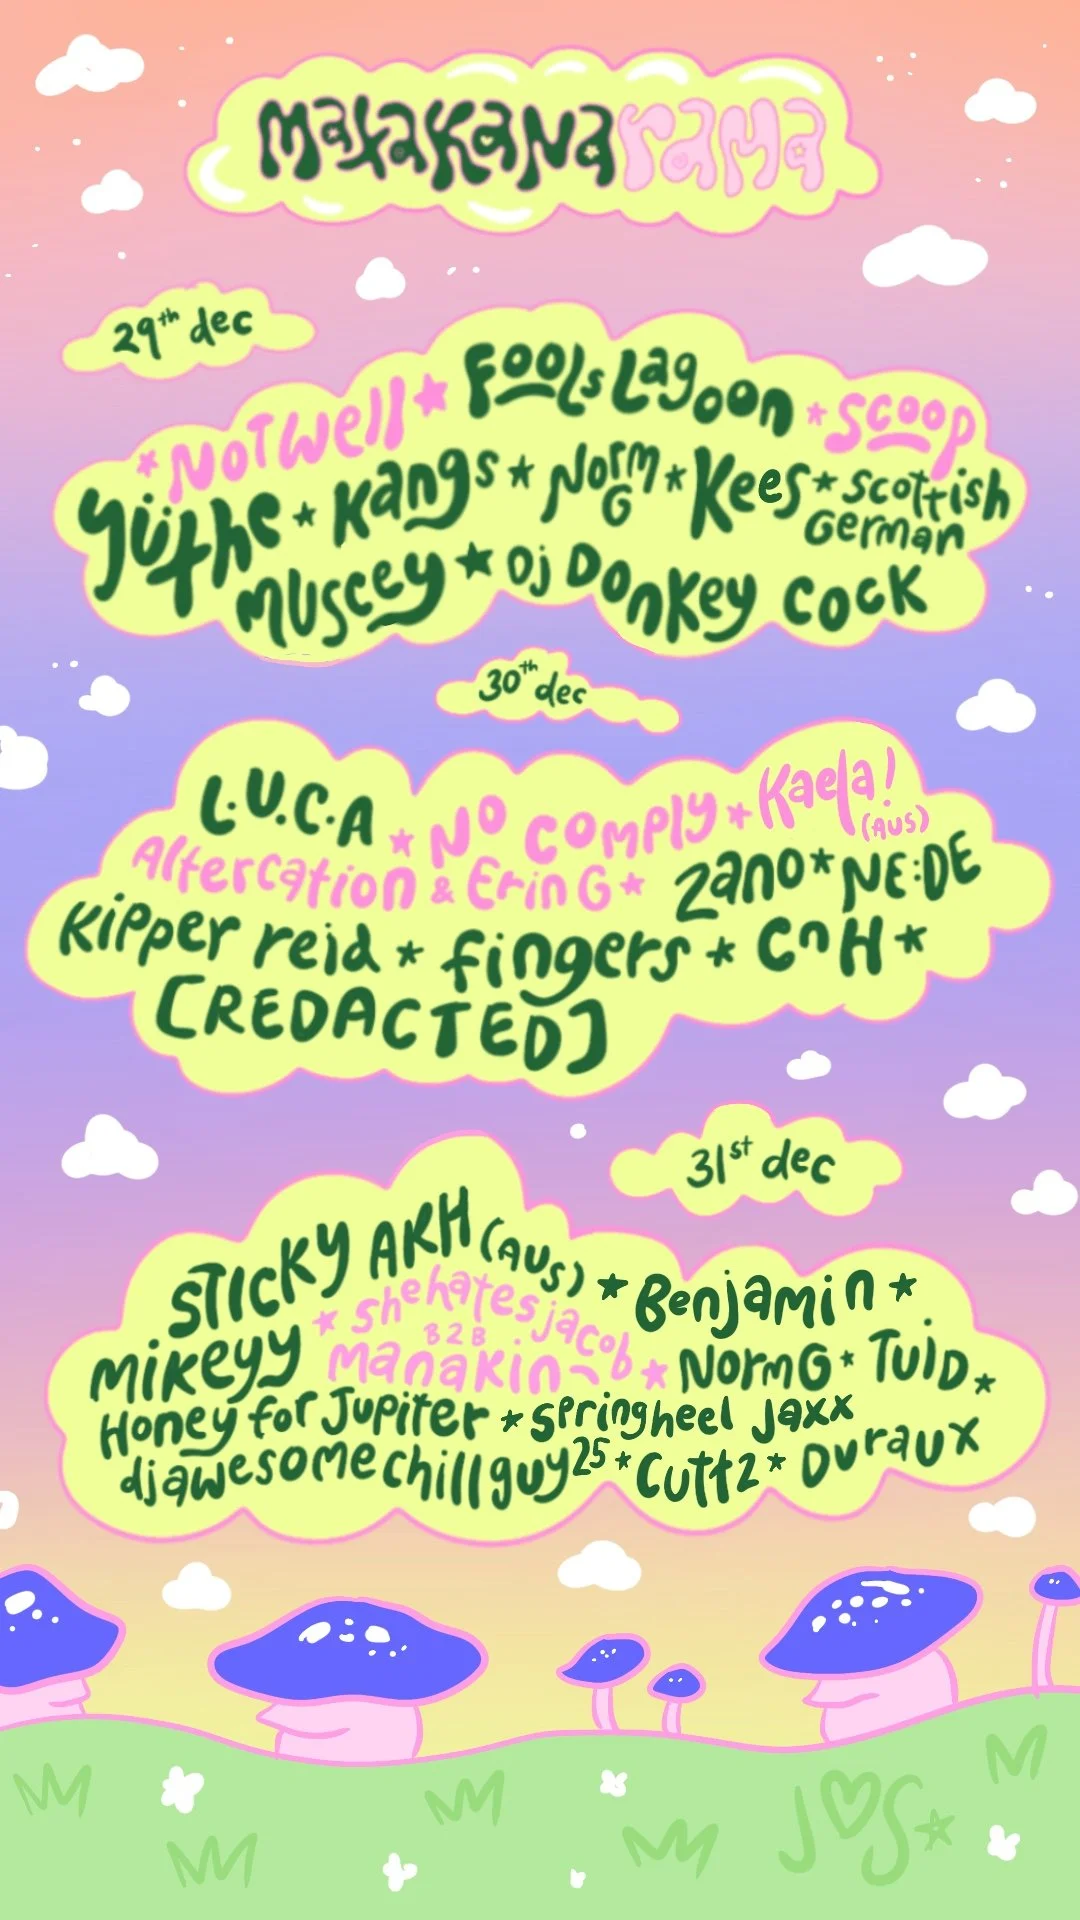 matakanarama
29th dec
Fools Lagoon
* Notwell * * Scoop
yüthe * Kangs * Norm G * Kees * Scottish German
Muscey * DJ Donkey Cock
30th dec
L.U.C.A * No Comply * Kaela! (AUS)
Altercation & Erin G * Zano * NE:DE
Kipper reid * fingers * CnH *
[REDACTED]
31st dec
STICKY ARH (AUS) * Benjamin *
mikeyy * shehatesjacob B2B manakin * NormG * Tuid *
Honey for Jupiter * Springheel Jaxx
djawesomechillguy25 * Cuttz * Duraux
J♡S*